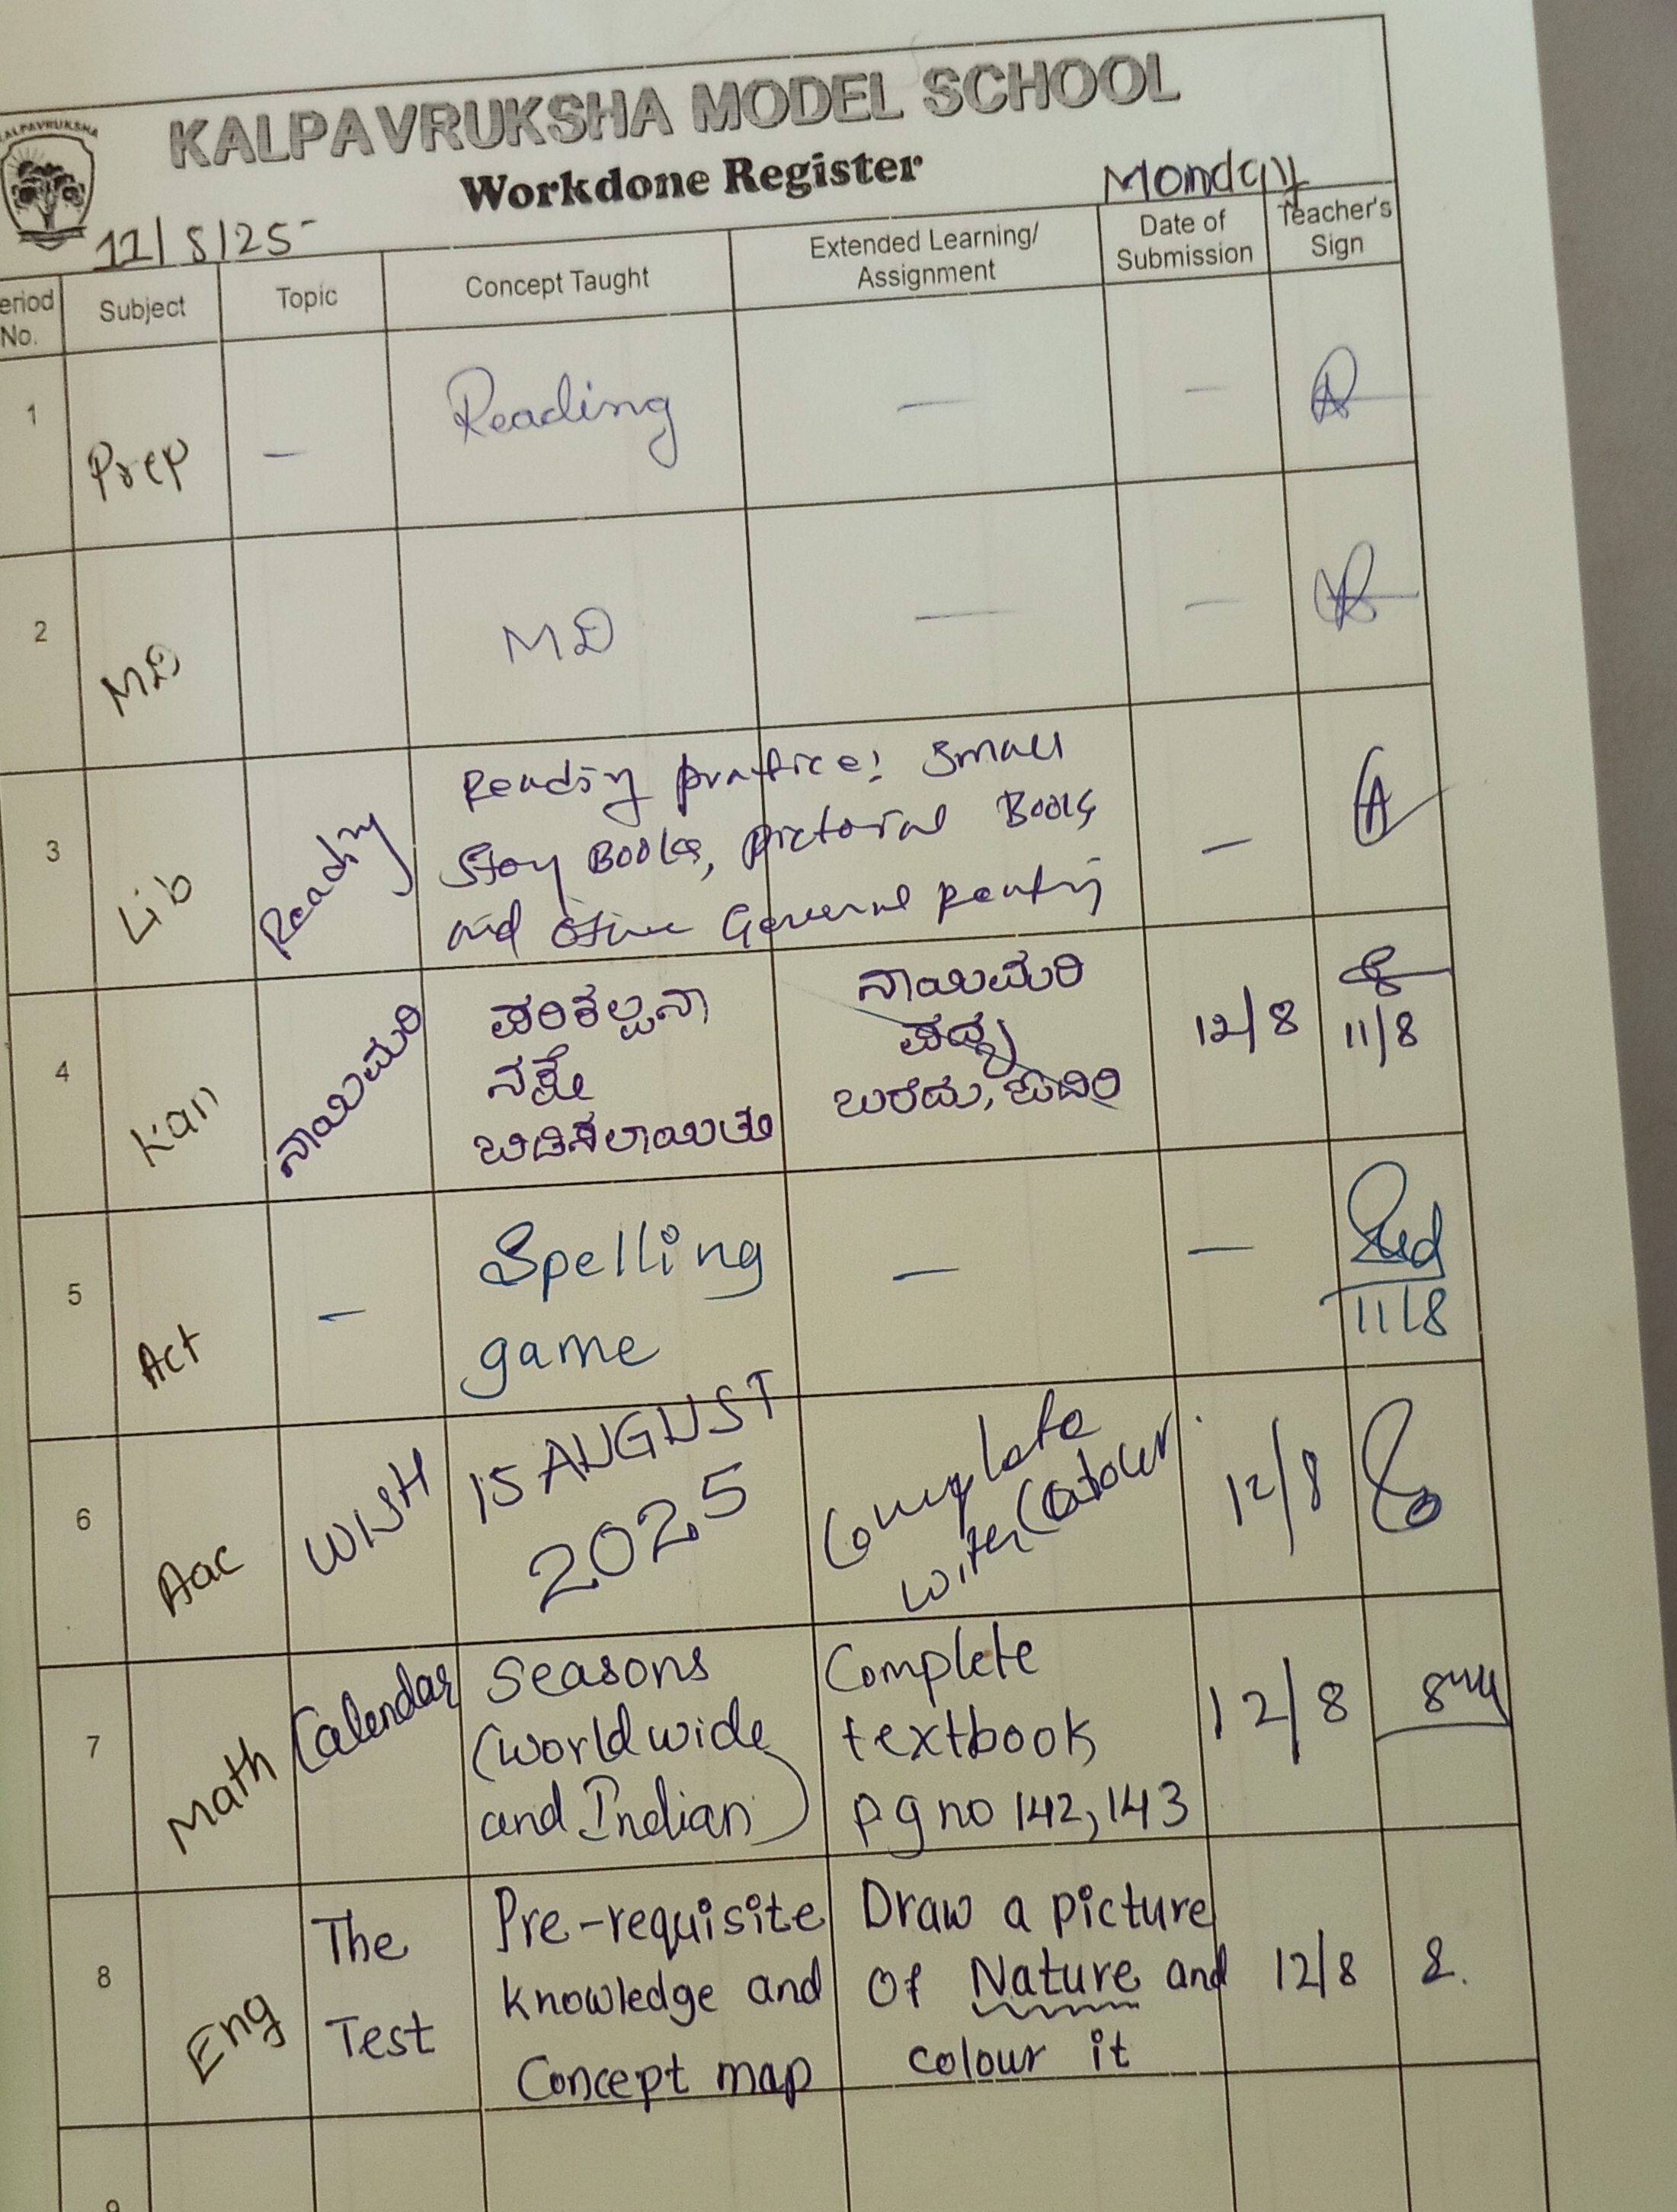 KALPAVRUKSHA
KALPAVRUKSHA MODEL SCHOOL
Workdone Register
11/8/25
Monday
Period No.
Subject
Topic
Concept Taught
Extended Learning/
Assignment
Date of
Submission
Teacher's
Sign
1
Prep
-
Reading
—
-
2
MD
MD
—
-
3
Lib
Reading
Reading practice: Small
Story Books, pictorial Books
and other General reading
-
4
Kan
ನಾಯಿಮರಿ
ಪರಿಕಲ್ಪನಾ
ನಕ್ಷೇ
ಬಿಡಿಸಲಾಯಿತು
ನಾಯಿಮರಿ
ಪದ್ಯ
ಬರೆದು, ಓದಿರಿ
12/8
11/8
5
Act
-
Spelling
game
—
—
11/8
6
Aac
WISH
15 AUGUST
2025
Complete
with Colour.
12/8
7
Math
Calendar
Seasons
(world wide
and Indian)
Complete
textbook
pg no 142, 143
12/8
8
Eng
The
Test
Pre-requisite
knowledge and
Concept map
Draw a picture
of Nature and
colour it
12/8
9